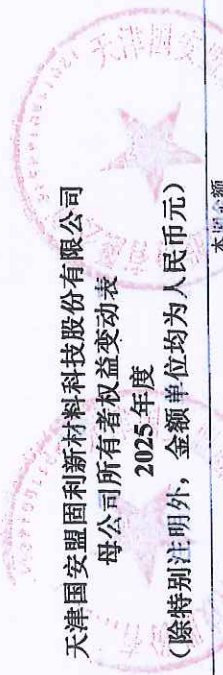 天津国安盟固利新材料科技股份有限公司
母公司所有者权益变动表
2025年度
（除特别注明外，金额单位均为人民币元）